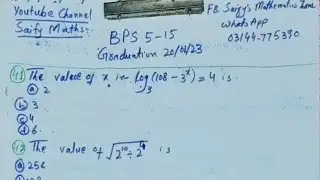 Youtube Channel
Saify Maths:
FB. Saify's Mathematics Zone
WhatsApp
03144-775390
BPS 5-15
Graduation 20/01/23
41 The value of x in log₃(108-3ˣ)=4 is
a 2
b 3
c 4
d 6
42 The value of √2¹⁰÷2⁴ is
a 256